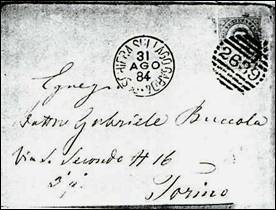 PESCHIERA SUL LAGO GARDA
31
AGO
84
Egreg
Dottor Gabriele Buccola
Via S. Secondo # 16
Torino